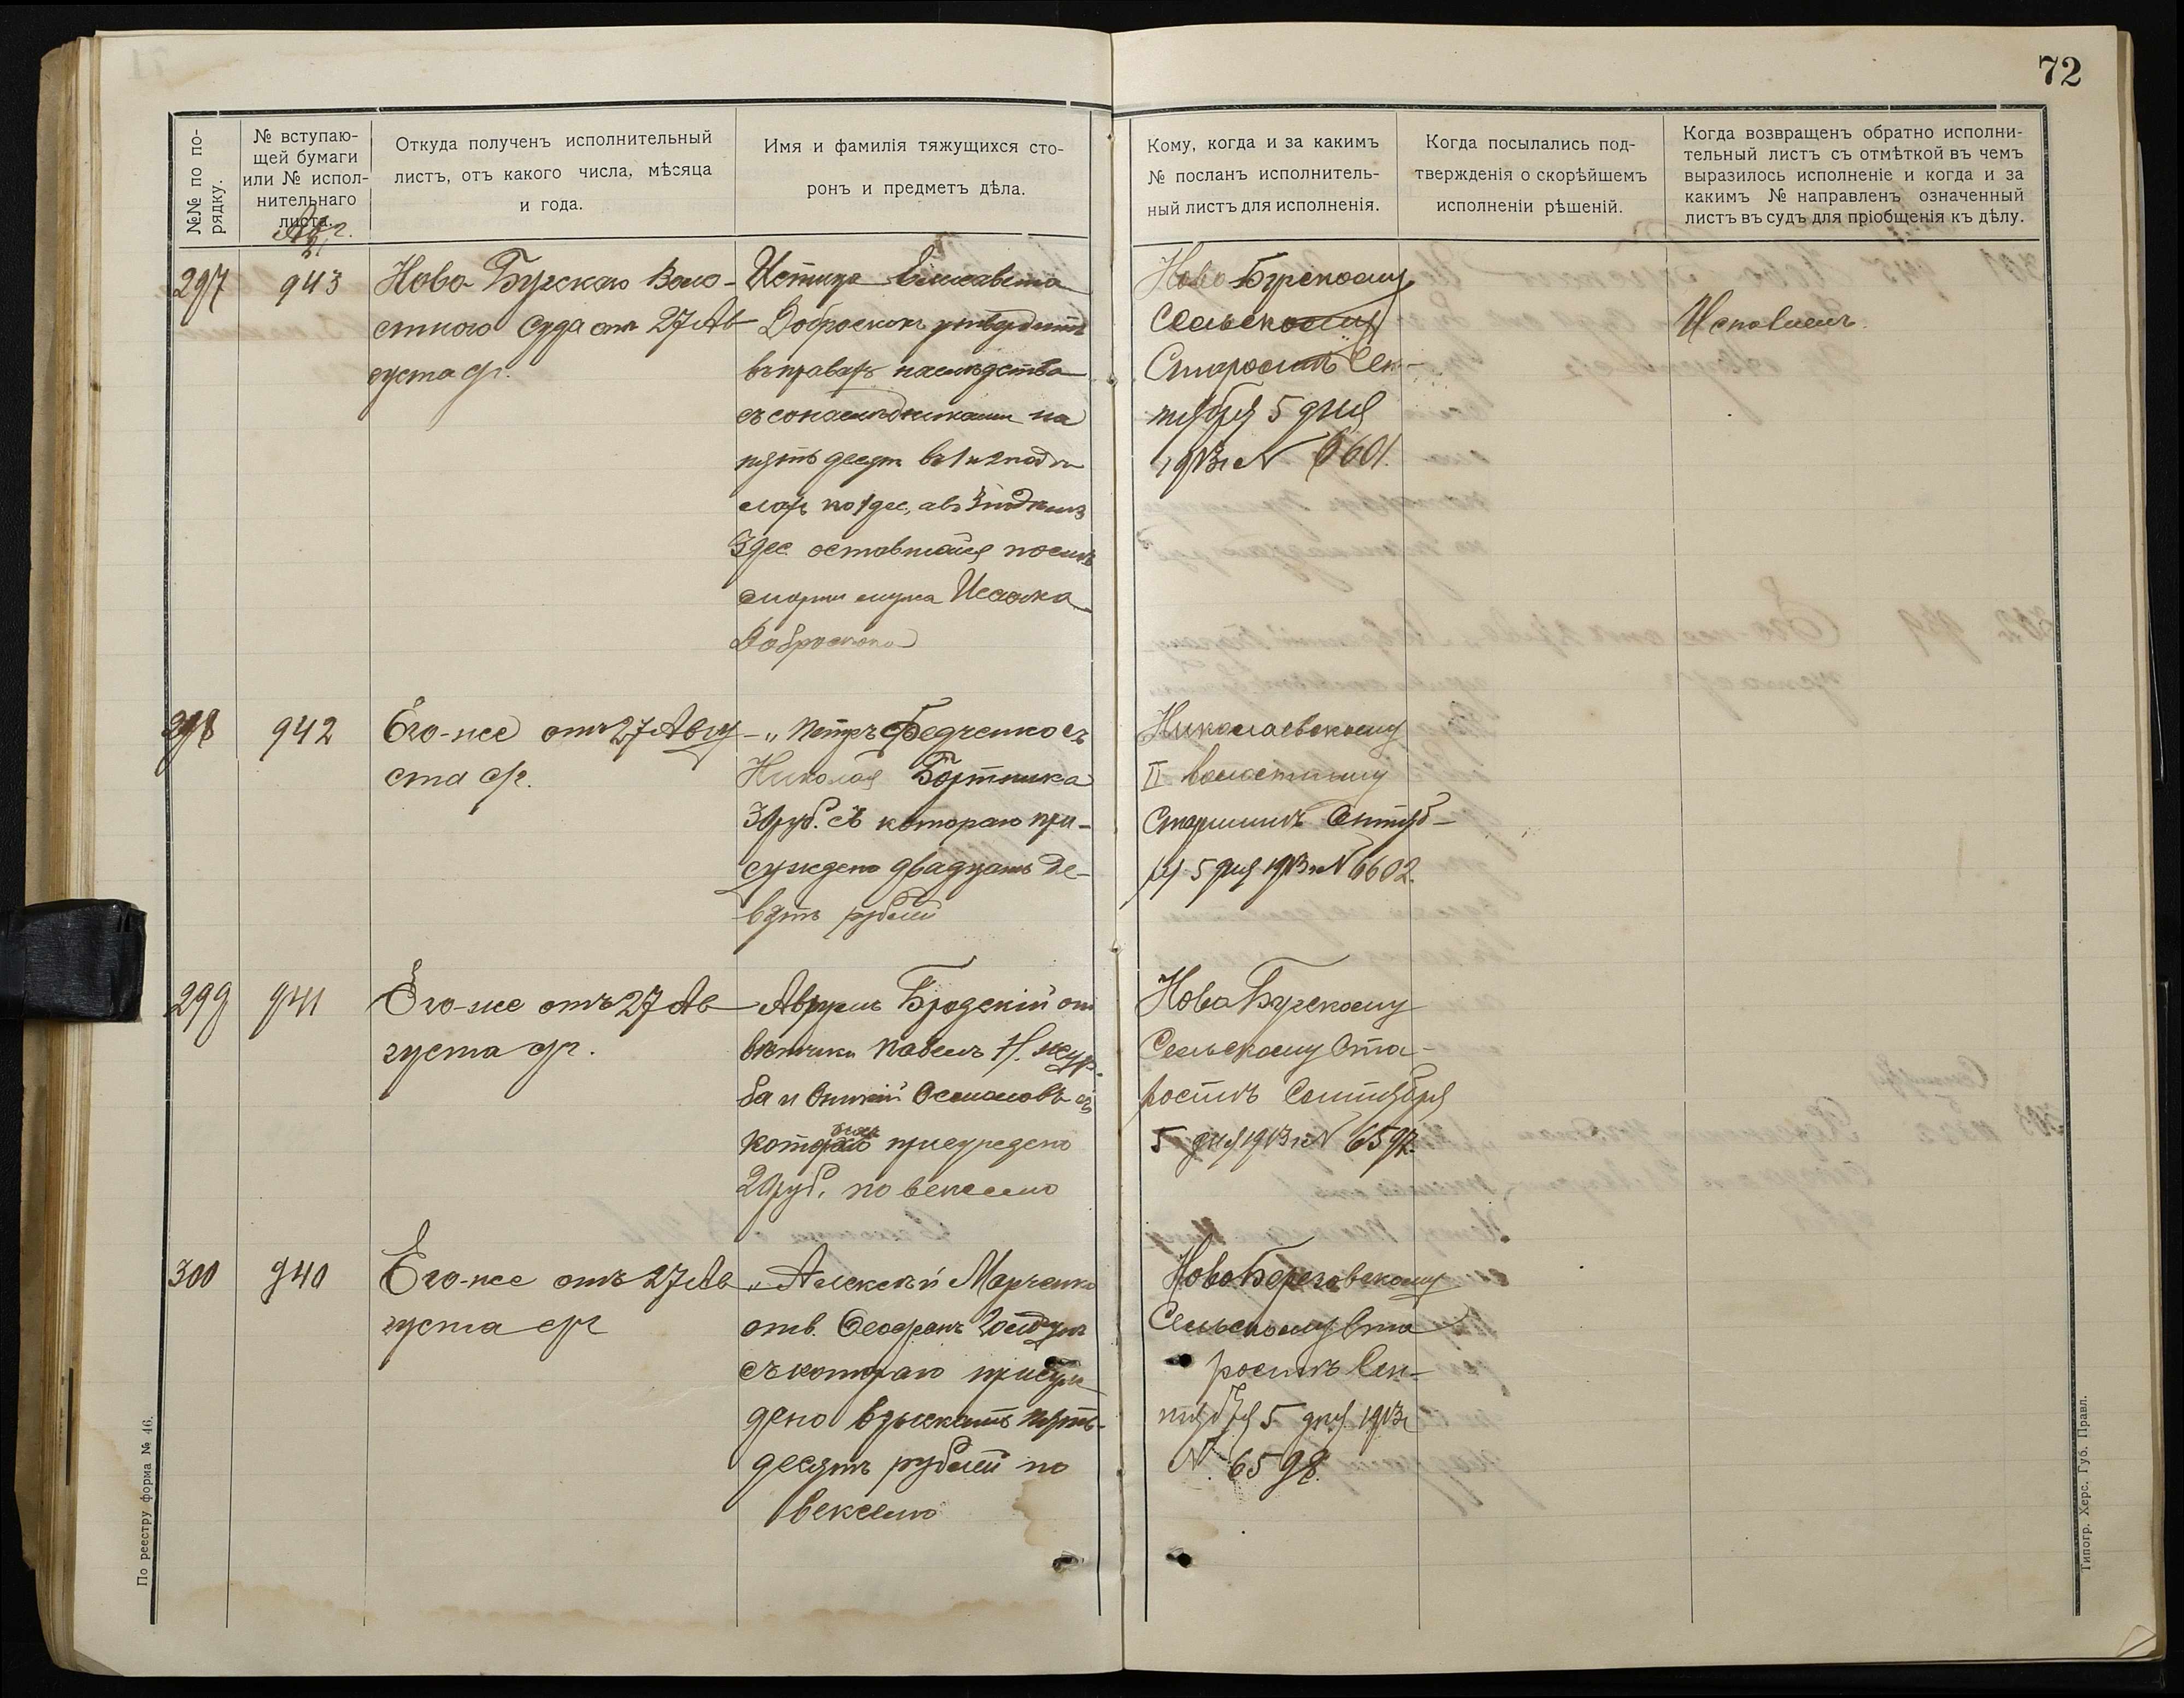 72
№№ по по-
рядку.
№ вступаю-
щей бумаги
или № испол-
нительнаго
листа.
Откуда полученъ исполнительный
листъ, отъ какого числа, мѣсяца
и года.
Имя и фамилія тяжущихся сто-
ронъ и предметъ дѣла.
Кому, когда и за какимъ
№ посланъ исполнитель-
ный листъ для исполненія.
Когда посылались под-
твержденія о скорѣйшемъ
исполненіи рѣшеній.
Когда возвращенъ обратно исполни-
тельный листъ съ отмѣткой въ чемъ
выразилось исполненіе и когда и за
какимъ № направленъ означенный
листъ въ судъ для пріобщенія къ дѣлу.
297
943
Ново-Бугскаго Воло-
стного Суда отъ 27 Ав
густа с/г.
Истица Елисавета
Доброскокъ утвердить
въ правахъ наслѣдства
съ сонаслѣдниками на
пять десят. въ 1 и 2 под
по 1 дес., а въ 3
3 дес. оставшейся послѣ
смерти мужа Исаака
Доброскока
Ново Бугскому
Сельскому
Старостѣ Сен-
тября 5 дня
1913 г. № 6601.
298
942
Его-же отъ 27 Авгу
ста с/г.
„ Петръ Федченко съ
Николая Бортника
30 руб. съ котораго при-
суждено двадцать де-
вять рублей
Николаевскому
II волостному
Старшинѣ Сентяб-
ря 5 дня 1913 г. № 6602.
299
941
Его-же отъ 27 Ав
густа с/г.
Аврумъ Бродскій от
вѣтчики Павелъ
присуждено
20 руб. по векселю
Ново Бугскому
Сельскому Ста-
ростѣ Сентября
5 дня 1913 г. № 6597.
300
940
Его-же отъ 27 Ав
густа с/г
„ Алексѣй Марченко
отв. Феофанъ
съ котораго присуж
дено взыскать пять-
десятъ рублей по
векселю
Ново Березовскому
Сельскому Ста
ростѣ Сен-
тября 5 дня 1913 г.
№ 6598.
По реестру форма № 46.
Типогр. Херс. Губ. Правл.